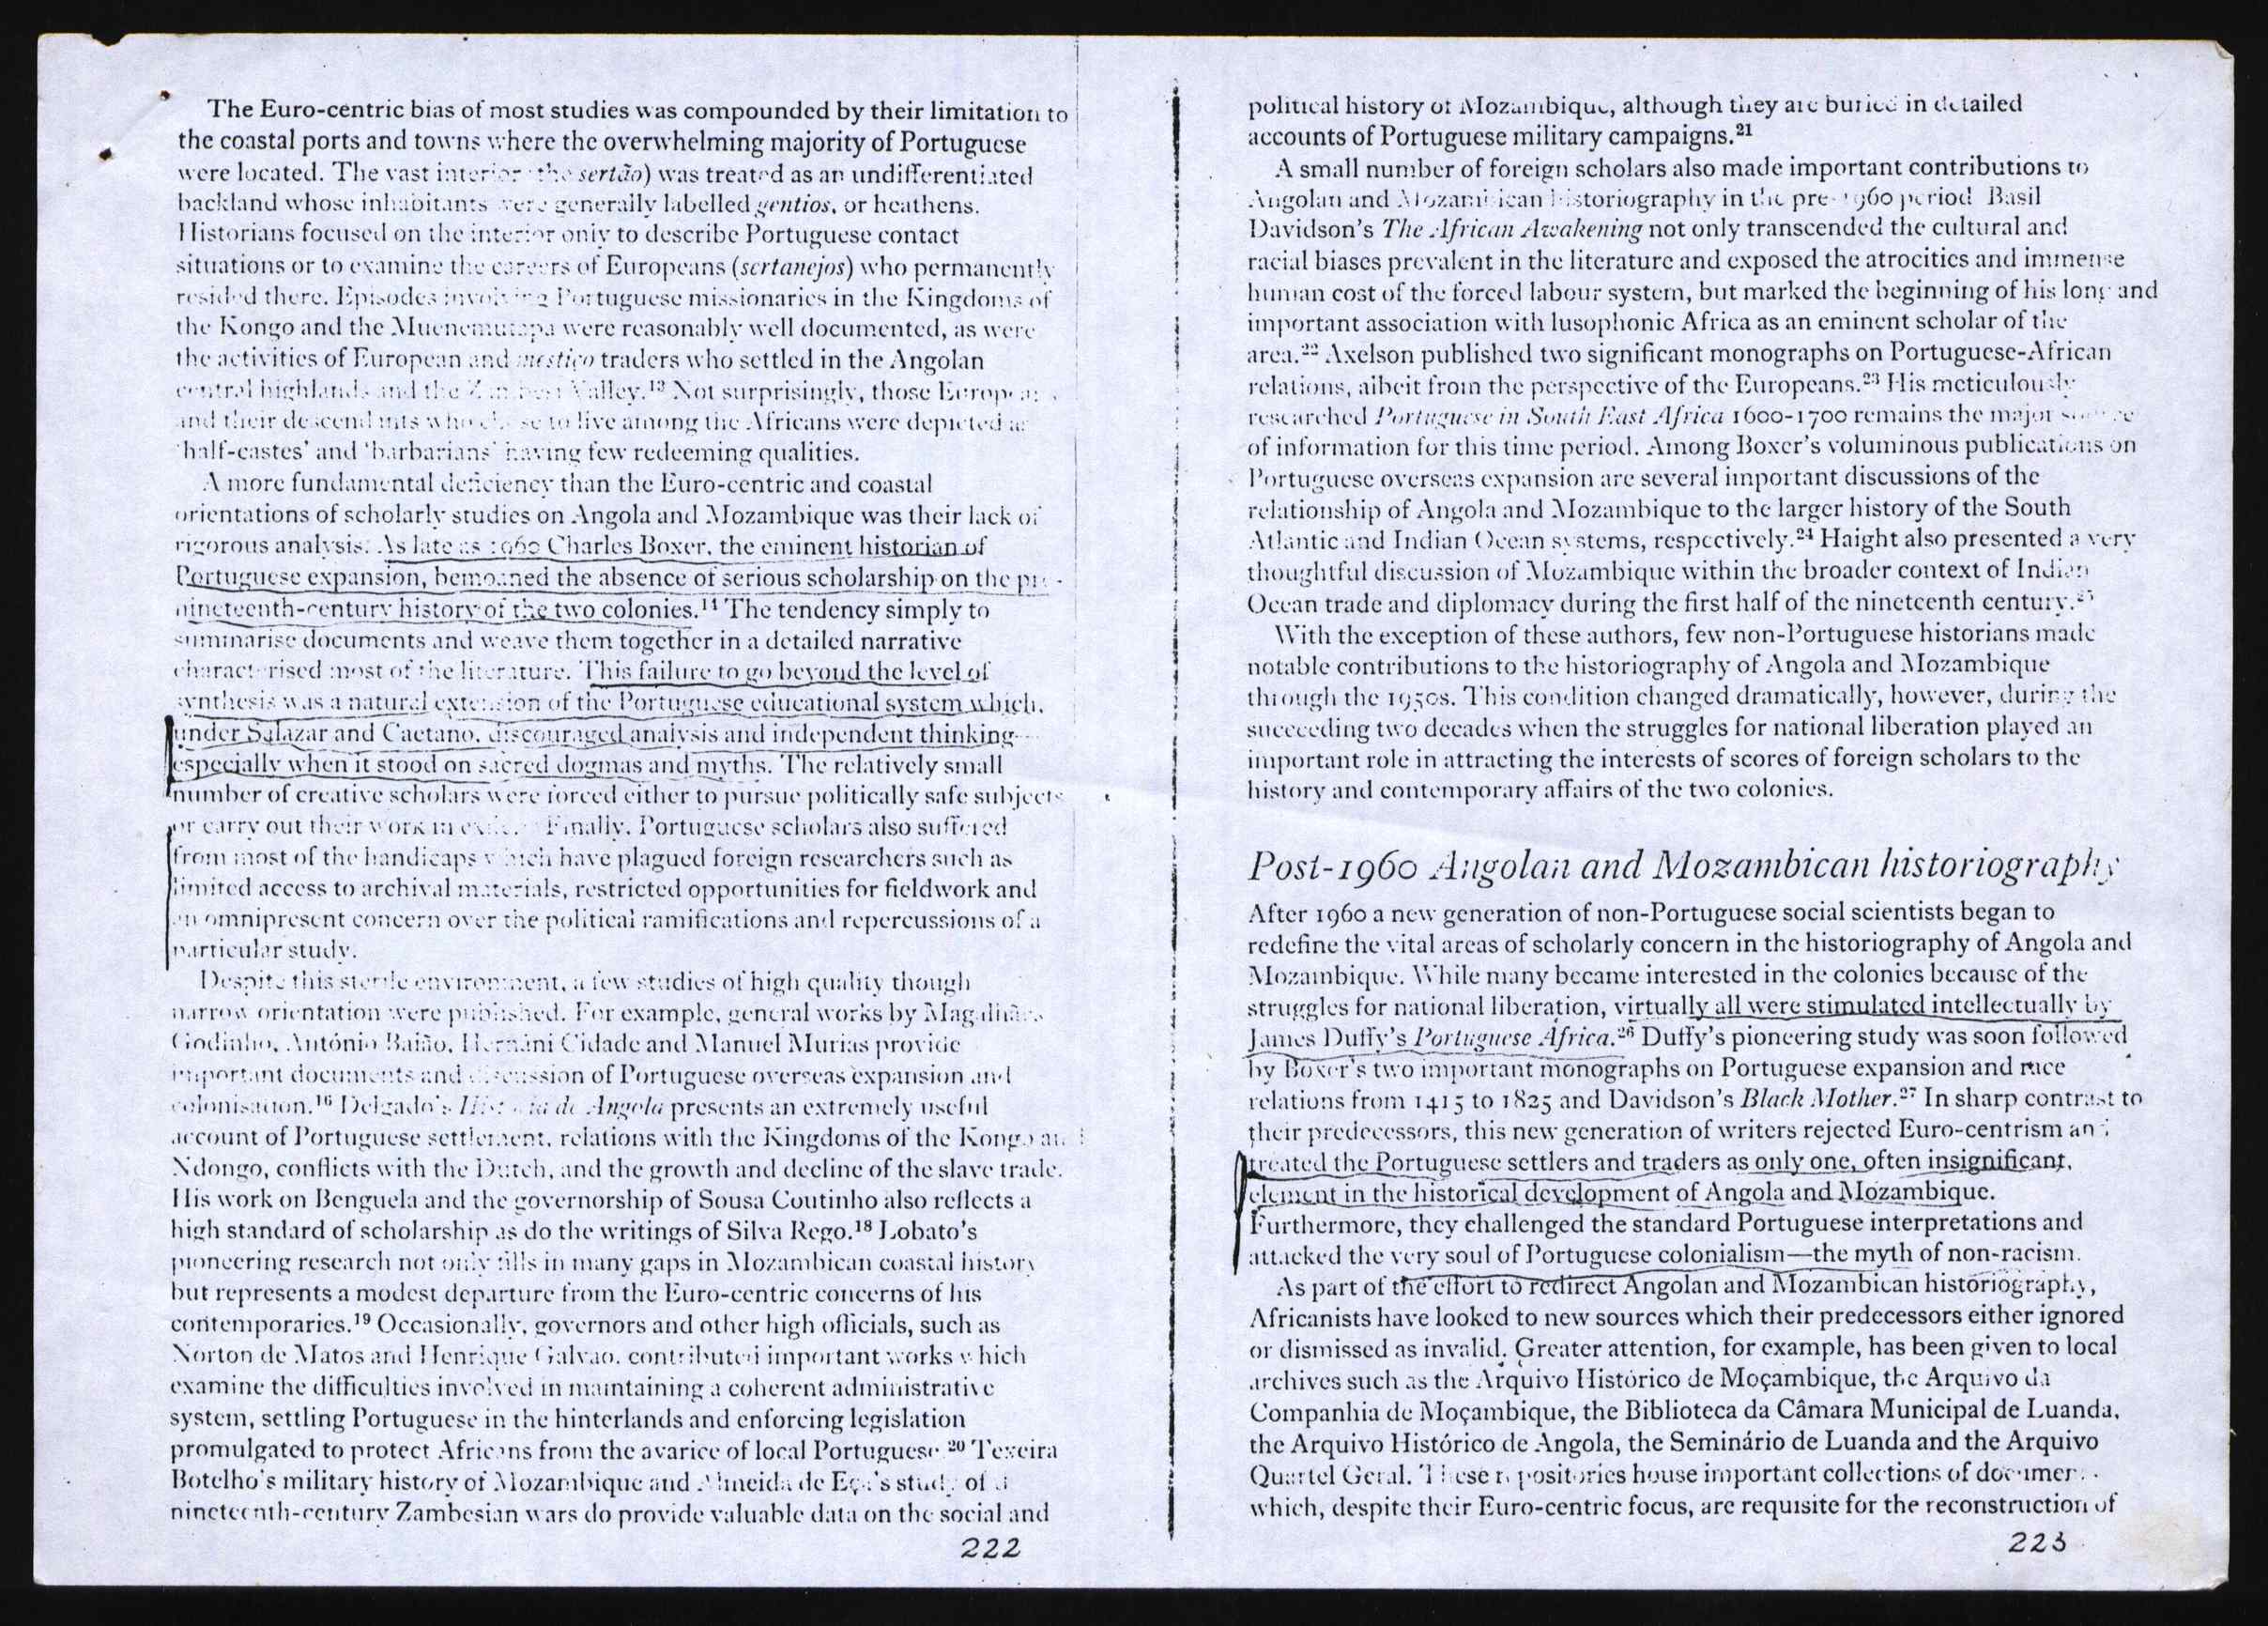 The Euro-centric bias of most studies was compounded by their limitation to
the coastal ports and towns where the overwhelming majority of Portuguese
were located. The vast interior (the sertão) was treated as an undifferentiated
backland whose inhabitants were generally labelled gentios, or heathens.
Historians focused on the interior only to describe Portuguese contact
situations or to examine the careers of Europeans (sertanejos) who permanently
resided there. Episodes involving Portuguese missionaries in the Kingdoms of
the Kongo and the Muenemutapa were reasonably well documented, as were
the activities of European and mestiço traders who settled in the Angolan
central highlands and the Zambesi Valley.¹³ Not surprisingly, those Europeans
and their descendants who chose to live among the Africans were depicted as
'half-castes' and 'barbarians' having few redeeming qualities.
A more fundamental deficiency than the Euro-centric and coastal
orientations of scholarly studies on Angola and Mozambique was their lack of
rigorous analysis. As late as 1960 Charles Boxer, the eminent historian of
Portuguese expansion, bemoaned the absence of serious scholarship on the pre-
nineteenth-century history of the two colonies.¹⁴ The tendency simply to
summarise documents and weave them together in a detailed narrative
characterised most of the literature. This failure to go beyond the level of
synthesis was a natural extension of the Portuguese educational system which,
under Salazar and Caetano, discouraged analysis and independent thinking—
especially when it stood on sacred dogmas and myths. The relatively small
number of creative scholars were forced either to pursue politically safe subjects
or carry out their work in exile. Finally, Portuguese scholars also suffered
from most of the handicaps which have plagued foreign researchers such as
limited access to archival materials, restricted opportunities for fieldwork and
an omnipresent concern over the political ramifications and repercussions of a
particular study.
Despite this sterile environment, a few studies of high quality though
narrow orientation were published. For example, general works by Magalhães
Godinho, António Baião, Hernâni Cidade and Manuel Murias provide
important documents and discussion of Portuguese overseas expansion and
colonisation.¹⁶ Delgado's História de Angola presents an extremely useful
account of Portuguese settlement, relations with the Kingdoms of the Kongo and
Ndongo, conflicts with the Dutch, and the growth and decline of the slave trade.
His work on Benguela and the governorship of Sousa Coutinho also reflects a
high standard of scholarship as do the writings of Silva Rego.¹⁸ Lobato's
pioneering research not only fills in many gaps in Mozambican coastal history
but represents a modest departure from the Euro-centric concerns of his
contemporaries.¹⁹ Occasionally, governors and other high officials, such as
Norton de Matos and Henrique Galvao, contributed important works which
examine the difficulties involved in maintaining a coherent administrative
system, settling Portuguese in the hinterlands and enforcing legislation
promulgated to protect Africans from the avarice of local Portuguese.²⁰ Texeira
Botelho's military history of Mozambique and Almeida de Eça's study of
nineteenth-century Zambesian wars do provide valuable data on the social and
222
political history of Mozambique, although they are buried in detailed
accounts of Portuguese military campaigns.²¹
A small number of foreign scholars also made important contributions to
Angolan and Mozambican historiography in the pre-1960 period. Basil
Davidson's The African Awakening not only transcended the cultural and
racial biases prevalent in the literature and exposed the atrocities and immense
human cost of the forced labour system, but marked the beginning of his long and
important association with lusophonic Africa as an eminent scholar of the
area.²² Axelson published two significant monographs on Portuguese-African
relations, albeit from the perspective of the Europeans.²³ His meticulously
researched Portuguese in South East Africa 1600-1700 remains the major source
of information for this time period. Among Boxer's voluminous publications on
Portuguese overseas expansion are several important discussions of the
relationship of Angola and Mozambique to the larger history of the South
Atlantic and Indian Ocean systems, respectively.²⁴ Haight also presented a very
thoughtful discussion of Mozambique within the broader context of Indian
Ocean trade and diplomacy during the first half of the nineteenth century.²⁵
With the exception of these authors, few non-Portuguese historians made
notable contributions to the historiography of Angola and Mozambique
through the 1950s. This condition changed dramatically, however, during the
succeeding two decades when the struggles for national liberation played an
important role in attracting the interests of scores of foreign scholars to the
history and contemporary affairs of the two colonies.
Post-1960 Angolan and Mozambican historiography
After 1960 a new generation of non-Portuguese social scientists began to
redefine the vital areas of scholarly concern in the historiography of Angola and
Mozambique. While many became interested in the colonies because of the
struggles for national liberation, virtually all were stimulated intellectually by
James Duffy's Portuguese Africa.²⁶ Duffy's pioneering study was soon followed
by Boxer's two important monographs on Portuguese expansion and race
relations from 1415 to 1825 and Davidson's Black Mother.²⁷ In sharp contrast to
their predecessors, this new generation of writers rejected Euro-centrism and
treated the Portuguese settlers and traders as only one, often insignificant,
element in the historical development of Angola and Mozambique.
Furthermore, they challenged the standard Portuguese interpretations and
attacked the very soul of Portuguese colonialism—the myth of non-racism.
As part of the effort to redirect Angolan and Mozambican historiography,
Africanists have looked to new sources which their predecessors either ignored
or dismissed as invalid. Greater attention, for example, has been given to local
archives such as the Arquivo Histórico de Moçambique, the Arquivo da
Companhia de Moçambique, the Biblioteca da Câmara Municipal de Luanda,
the Arquivo Histórico de Angola, the Seminário de Luanda and the Arquivo
Quartel Geral. These repositories house important collections of documents
which, despite their Euro-centric focus, are requisite for the reconstruction of
223